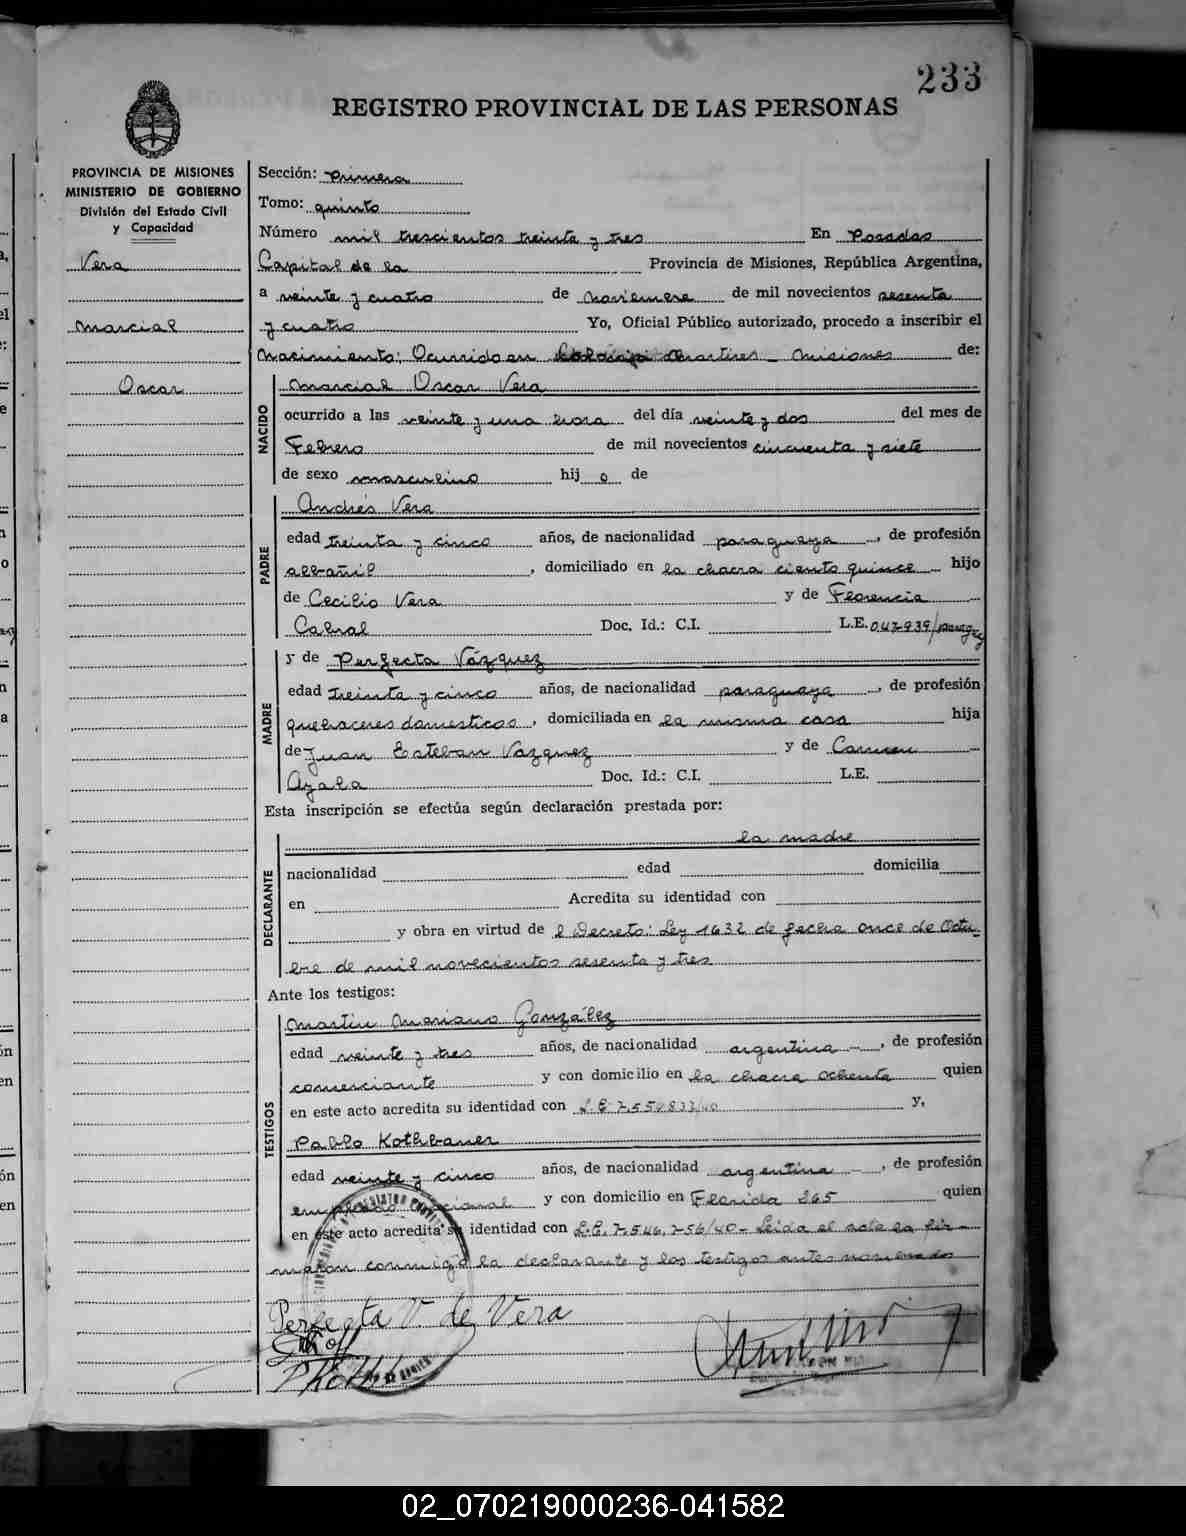 233
REGISTRO PROVINCIAL DE LAS PERSONAS
PROVINCIA DE MISIONES
MINISTERIO DE GOBIERNO
División del Estado Civil
y Capacidad
Vera
Marcial
Oscar
Sección: Primera
Tomo: quinto
Número mil trescientos treinta y tres En Posadas
Capital de la Provincia de Misiones, República Argentina,
a veinte y cuatro de noviembre de mil novecientos sesenta
y cuatro Yo, Oficial Público autorizado, procedo a inscribir el
Nacimiento; Ocurrido en Martires - Misiones de:
NACIDO
Marcial Oscar Vera
ocurrido a las veinte y una hora del día veinte y dos del mes de
Febrero de mil novecientos cincuenta y siete
de sexo masculino hij o de
PADRE
Andrés Vera
edad treinta y cinco años, de nacionalidad paraguaya, de profesión
albañil, domiciliado en la chacra ciento quince hijo
de Cecilio Vera y de Florencia
Cabral Doc. Id.: C.I. L.E. 047939/
MADRE
y de Perfecta Vázquez
edad treinta y cinco años, de nacionalidad paraguaya, de profesión
quehaceres domesticos, domiciliada en la misma casa hija
de Juan Esteban Vazquez y de Carmen
Ayala Doc. Id.: C.I. L.E.
Esta inscripción se efectúa según declaración prestada por:
DECLARANTE
la madre
nacionalidad edad domicilia
en Acredita su identidad con
y obra en virtud de l Decreto: Ley 1632 de fecha once de Octu-
bre de mil novecientos sesenta y tres
Ante los testigos:
TESTIGOS
Martin Mariano González
edad veinte y tres años, de nacionalidad argentina, de profesión
comerciante y con domicilio en la chacra ochenta quien
en este acto acredita su identidad con L.E. 7.550833/40 y,
Pablo Kothbauer
edad veinte y cinco años, de nacionalidad argentina, de profesión
empleado nacional y con domicilio en Florida 265 quien
en este acto acredita su identidad con L.E. 7.546.756/40 - Leida el acta la fir-
maron conmigo la declarante y los testigos antes nombrados
Perfecta V. de Vera
02_070219000236-041582